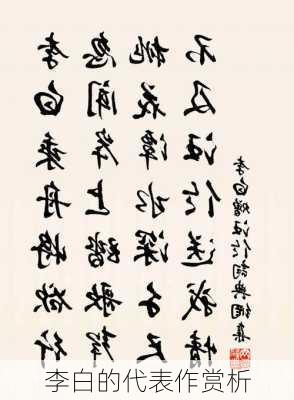 李白乘舟將欲行
忽聞岸上踏歌聲
桃花潭水深千尺
不及汪伦送我情
李白赠汪伦詞典網集
李白的代表作赏析